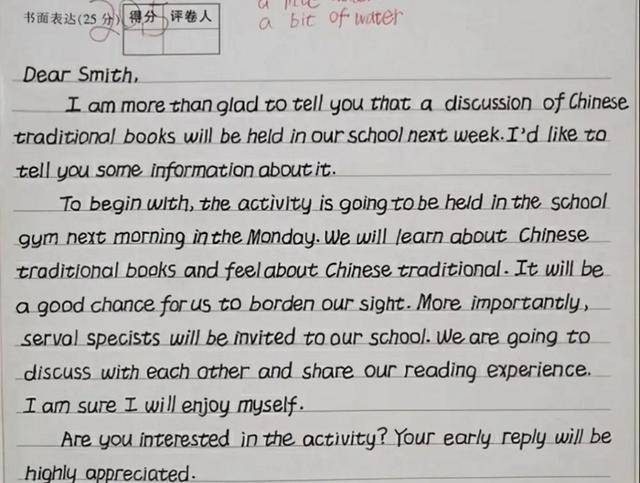 书面表达(25分) 得分 评卷人
a bit of water
Dear Smith,
I am more than glad to tell you that a discussion of Chinese
traditional books will be held in our school next week. I'd like to
tell you some information about it.
To begin with, the activity is going to be held in the school
gym next morning in the Monday. We will learn about Chinese
traditional books and feel about Chinese traditional. It will be
a good chance for us to borden our sight. More importantly,
serval specists will be invited to our school. We are going to
discuss with each other and share our reading experience.
I am sure I will enjoy myself.
Are you interested in the activity? Your early reply will be
highly appreciated.